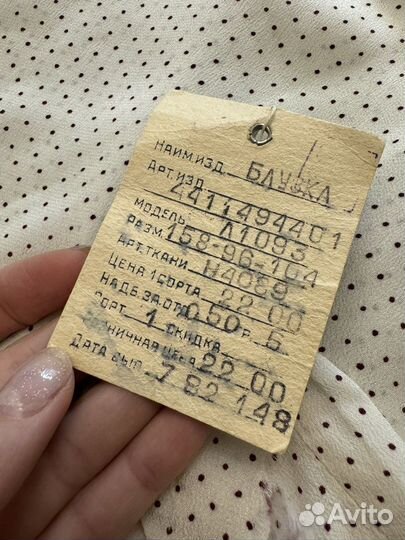 НАИМ.ИЗД. БЛУЗКА
АРТ.ИЗД. 4411494401
МОДЕЛЬ Л1093
РАЗМ. 158-96-104
АРТ.ТКАНИ Н4089
ЦЕНА 1 СОРТА 22 00
НАДБ.ЗА 050 Р. Б
СОРТ 1 СКИДКА
РОЗНИЧНАЯ ЦЕНА 22 00
ДАТА ВЫП. 7 82 148
Avito